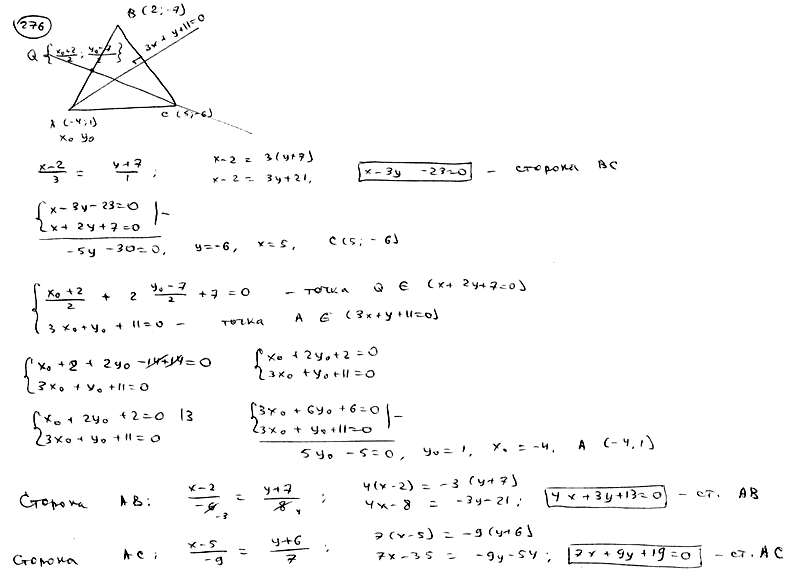 276
B (2; -7)
3x + y+11=0
Q { x₀+2/2 ; y₀-7/2 }
A (-4; 1)
x₀ y₀
C (5; -6)
x-2/3 = y+7/1 ; x-2 = 3(y+7)
x-2 = 3y+21, x-3y -23=0 - сторона BC
{ x-3y-23=0 | -
x+2y+7=0
-5y -30=0, y=-6, x=5, C(5; -6)
{ x₀+2/2 + 2 y₀-7/2 +7=0 - точка Q ∈ (x+2y+7=0)
3x₀+y₀+11=0 - точка A ∈ (3x+y+11=0)
{ x₀+2+2y₀-14+14=0 { x₀+2y₀+2=0
3x₀+y₀+11=0 3x₀+y₀+11=0
{ x₀+2y₀+2=0 |3 { 3x₀+6y₀+6=0 | -
3x₀+y₀+11=0 3x₀+y₀+11=0
5y₀-5=0, y₀=1, x₀=-4, A (-4, 1)
Сторона AB: x-2/-6 -3 = y+7/8 4 ; 4(x-2) = -3(y+7)
4x-8 = -3y-21; 4x+3y+13=0 - ст. AB
Сторона AC: x-5/-9 = y+6/7 ; 7(x-5) = -9(y+6)
7x-35 = -9y-54; 7x+9y+19=0 - ст. AC